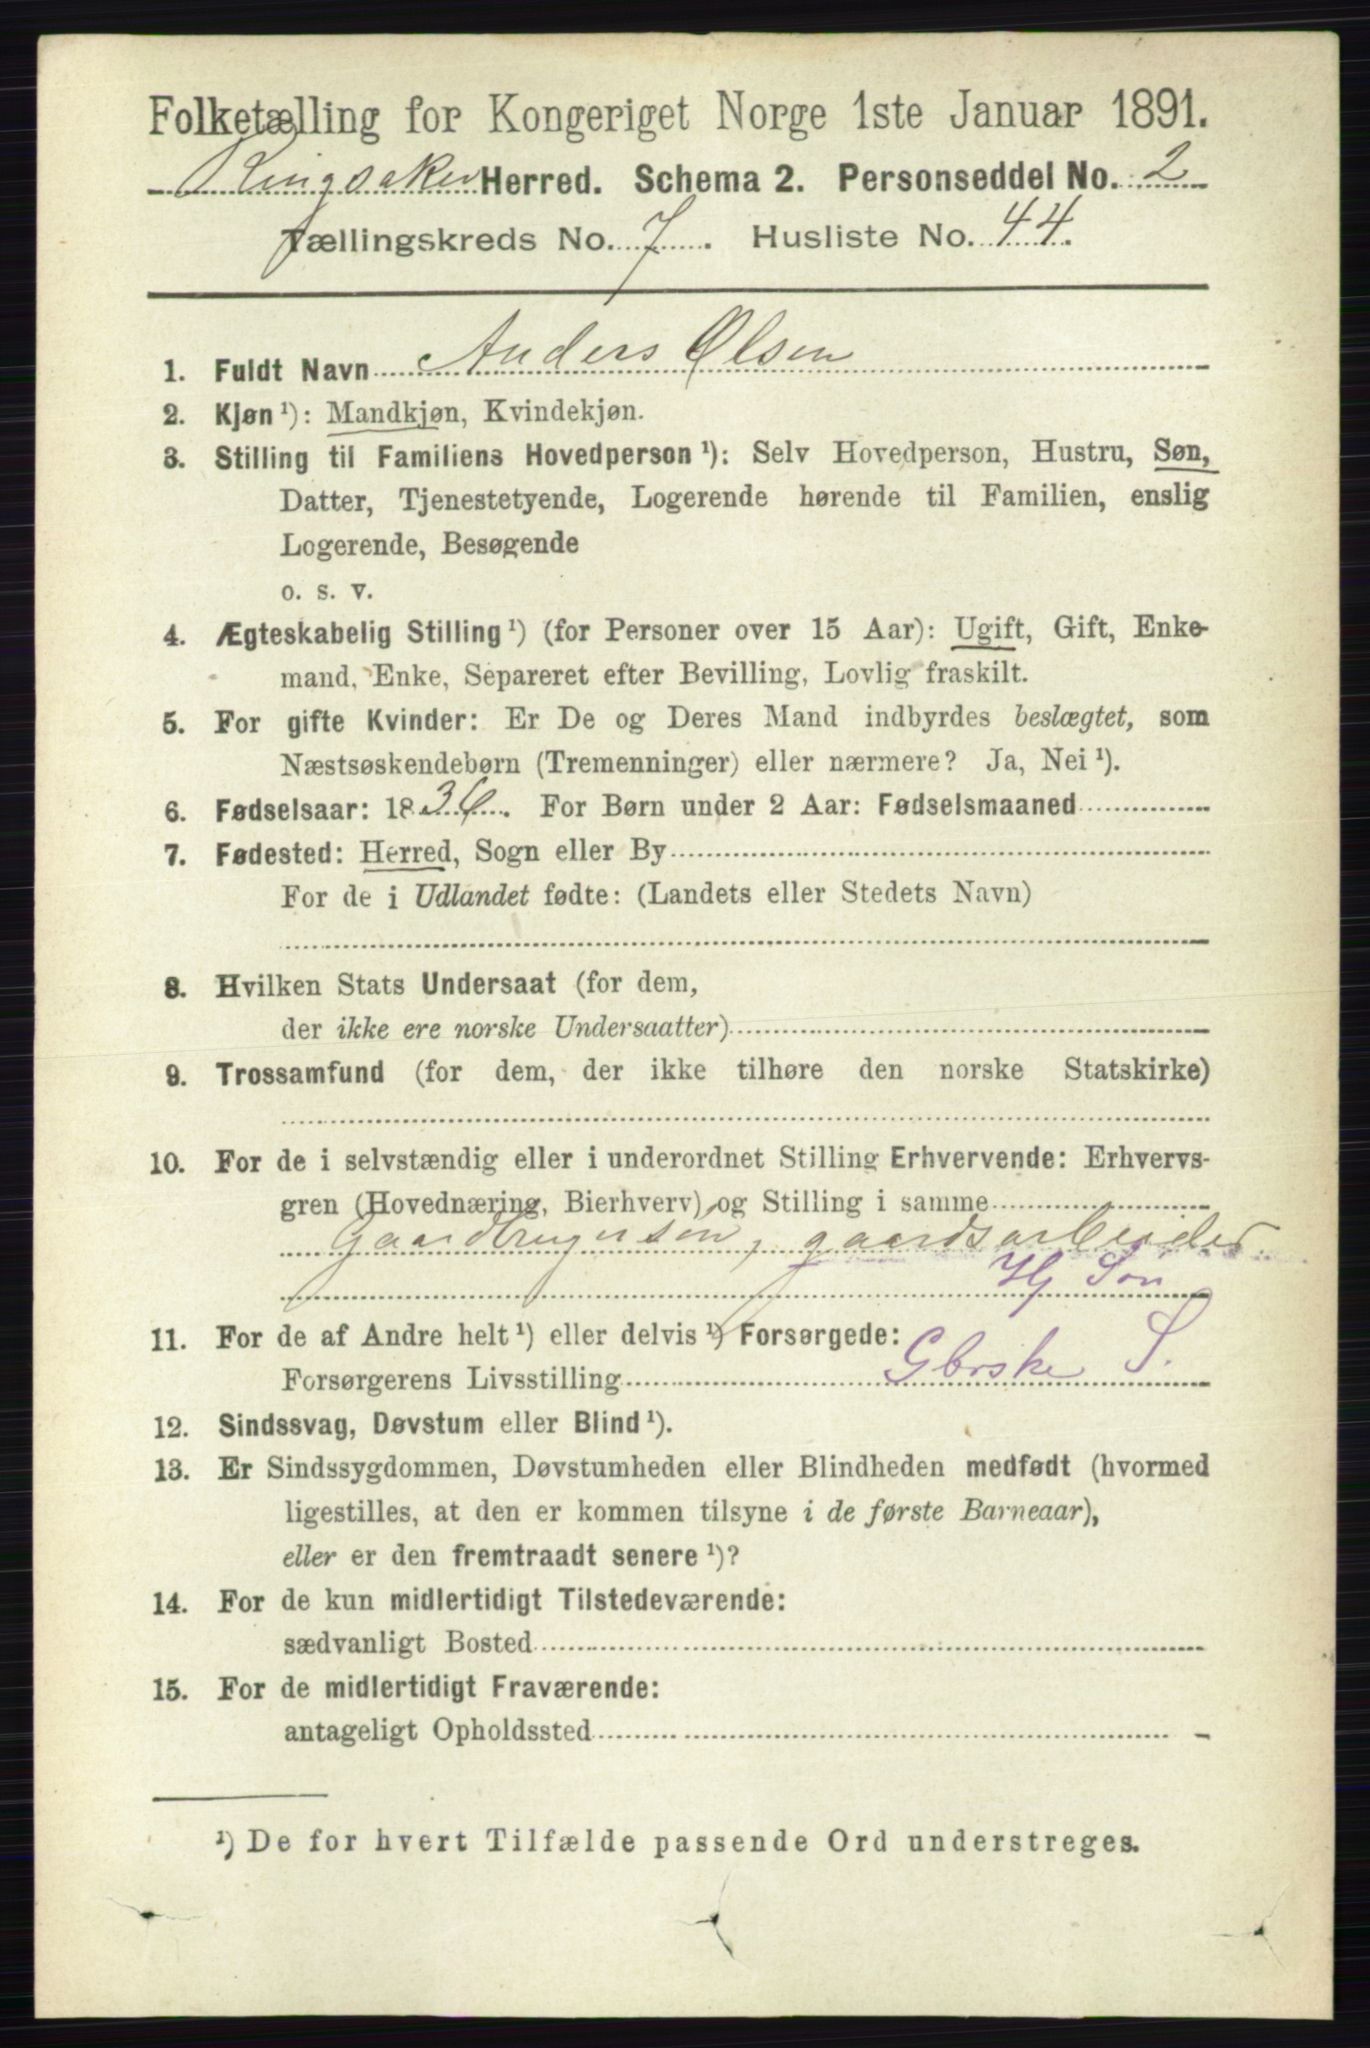 Folketælling for Kongeriget Norge 1ste Januar 1891.
Ringsaker Herred. Schema 2. Personseddel No. 2
Tællingskreds No. 7. Husliste No. 44.
1. Fuldt Navn Anders Olsen
2. Kjøn ¹): Mandkjøn, Kvindekjøn.
3. Stilling til Familiens Hovedperson ¹): Selv Hovedperson, Hustru, Søn,
Datter, Tjenestetyende, Logerende hørende til Familien, enslig
Logerende, Besøgende
o. s. v.
4. Ægteskabelig Stilling ¹) (for Personer over 15 Aar): Ugift, Gift, Enke-
mand, Enke, Separeret efter Bevilling, Lovlig fraskilt.
5. For gifte Kvinder: Er De og Deres Mand indbyrdes beslægtet, som
Næstsøskendebørn (Tremenninger) eller nærmere? Ja, Nei ¹).
6. Fødselsaar: 1836. For Børn under 2 Aar: Fødselsmaaned
7. Fødested: Herred, Sogn eller By
For de i Udlandet fødte: (Landets eller Stedets Navn)
8. Hvilken Stats Undersaat (for dem,
der ikke ere norske Undersaatter)
9. Trossamfund (for dem, der ikke tilhøre den norske Statskirke)
10. For de i selvstændig eller i underordnet Stilling Erhvervende: Erhvervs-
gren (Hovednæring, Bierhverv) og Stilling i samme
Gaardbrugersøn, gaardsarbeider
Hj Søn
11. For de af Andre helt ¹) eller delvis ¹) Forsørgede:
Forsørgerens Livsstilling Gbrske S.
12. Sindssvag, Døvstum eller Blind ¹).
13. Er Sindssygdommen, Døvstumheden eller Blindheden medfødt (hvormed
ligestilles, at den er kommen tilsyne i de første Barneaar),
eller er den fremtraadt senere ¹)?
14. For de kun midlertidigt Tilstedeværende:
sædvanligt Bosted
15. For de midlertidigt Fraværende:
antageligt Opholdssted
¹) De for hvert Tilfælde passende Ord understreges.